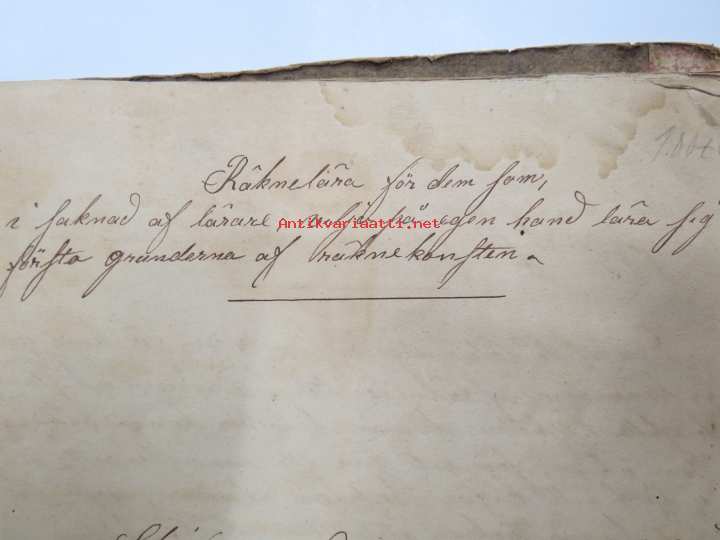 Räknelära för dem som,
i saknad af lärare på egen hand lära sig
första grunderna af räknekonsten.
Antikvariaatti.net